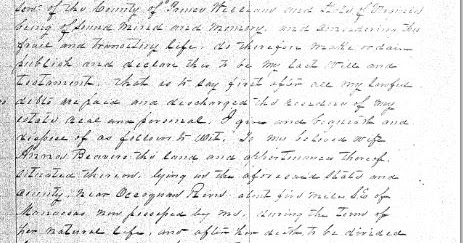 of the County of Prince William and State of Virginia
being of sound mind and memory, and considering the
frail and transitory life, do therefore make ordain
publish and declare this to be my last Will and
testament. That is to say first after all my lawful
debts are paid and discharged the residue of my
estate real and personal. I give and bequeath and
dispose of as follows to wit, To my beloved wife
Anna Beavers the land and appertenances thereof
situated thereon lying in the aforesaid State and
County, near Occoquan River about five miles So. of
Manassas now possessed by me, during the term of
her natural life, and after her death to be divided